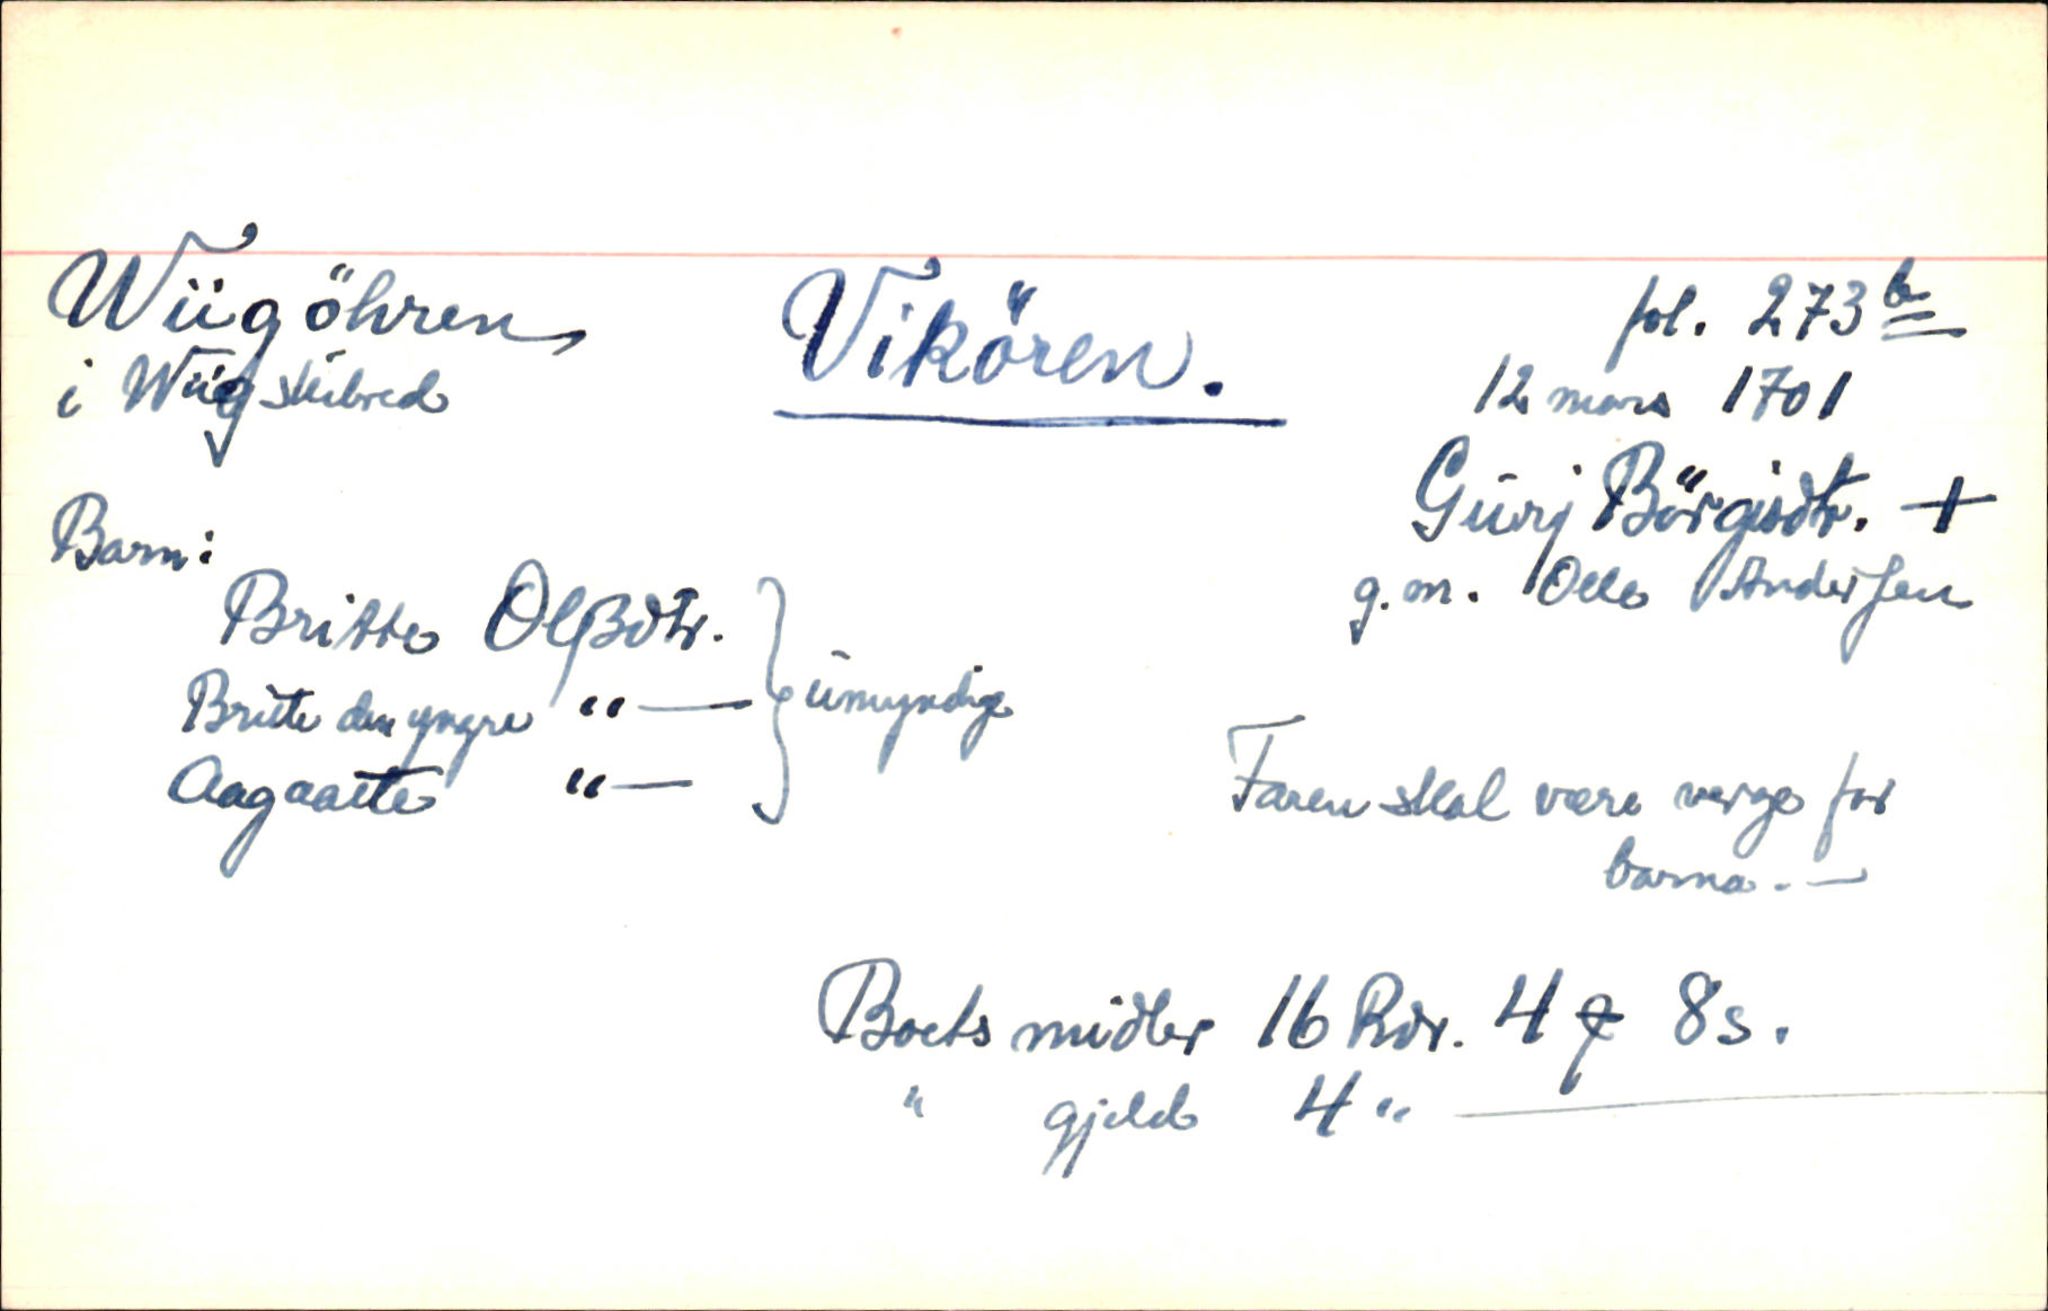 Wiigöhren
i Wiigskibred
Vikören.
fol. 273 b
12 mars 1701
Gurj Börgisdtr. +
g.m. Olle Andersen
Barn:
Britte Olßdtr.
Britte den yngre " —
Aagaatte " —
} umyndig
Faren skal være verge for
barna. —
Boets midler 16 Rdr. 4 ꝗ 8 s.
" gjeld 4 " —